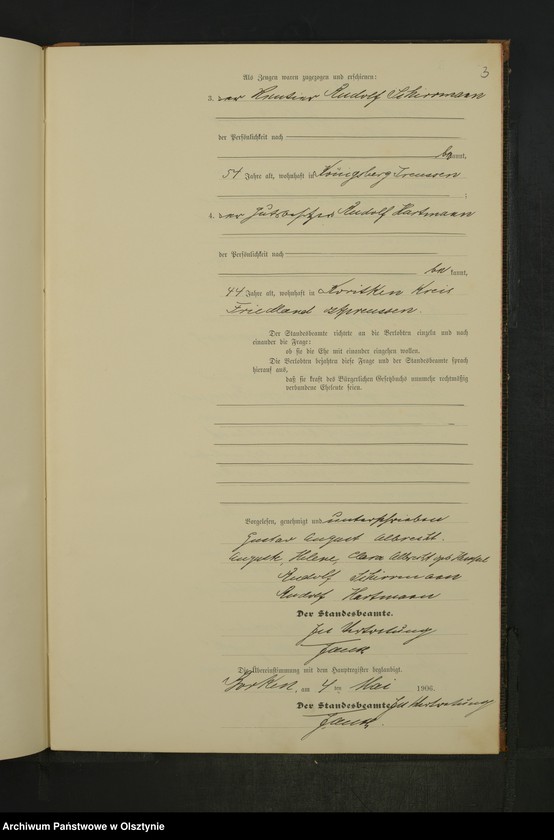 3
Als Zeugen waren zugezogen und erschienen:
3. der Rentier Rudolf Schirrmann
der Persönlichkeit nach
be kannt,
54 Jahre alt, wohnhaft in Königsberg Preussen
;
4. der Gutsbesitzer Rudolf Hartmann
der Persönlichkeit nach
be kannt,
44 Jahre alt, wohnhaft in Koritken Kreis
Friedland Ostpreussen.
Der Standesbeamte richtete an die Verlobten einzeln und nach
einander die Frage:
ob sie die Ehe mit einander eingehen wollen.
Die Verlobten bejahten diese Frage und der Standesbeamte sprach
hierauf aus,
daß sie kraft des Bürgerlichen Gesetzbuchs nunmehr rechtmäßig
verbundene Eheleute seien.
Vorgelesen, genehmigt und unterschrieben
Gustav August Albrecht.
Auguste, Helene, Clara Albrecht geb.
Rudolf Schirrmann
Rudolf Hartmann
Der Standesbeamte.
In Vertretung
Die Übereinstimmung mit dem Hauptregister beglaubigt.
Borken, am 4 ten Mai 1906.
Der Standesbeamte In Vertretung
Archiwum Państwowe w Olsztynie